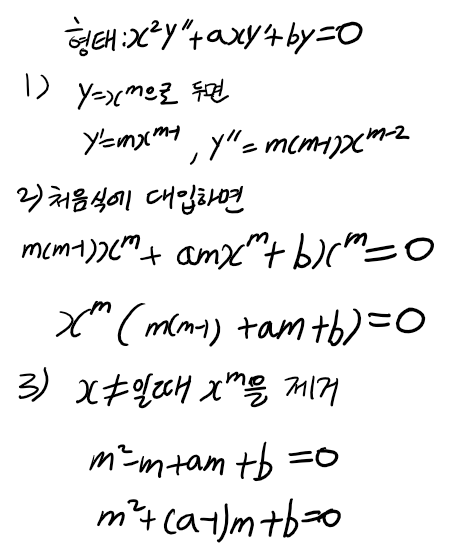 형태:x²y''+axy'+by=0
1) y=x^m으로 두면
y'=mx^(m-1), y''=m(m-1)x^(m-2)
2)처음식에 대입하면
m(m-1)x^m+amx^m+bx^m=0
x^m(m(m-1)+am+b)=0
3) x≠일때 x^m을 제거
m²-m+am+b=0
m²+(a-1)m+b=0